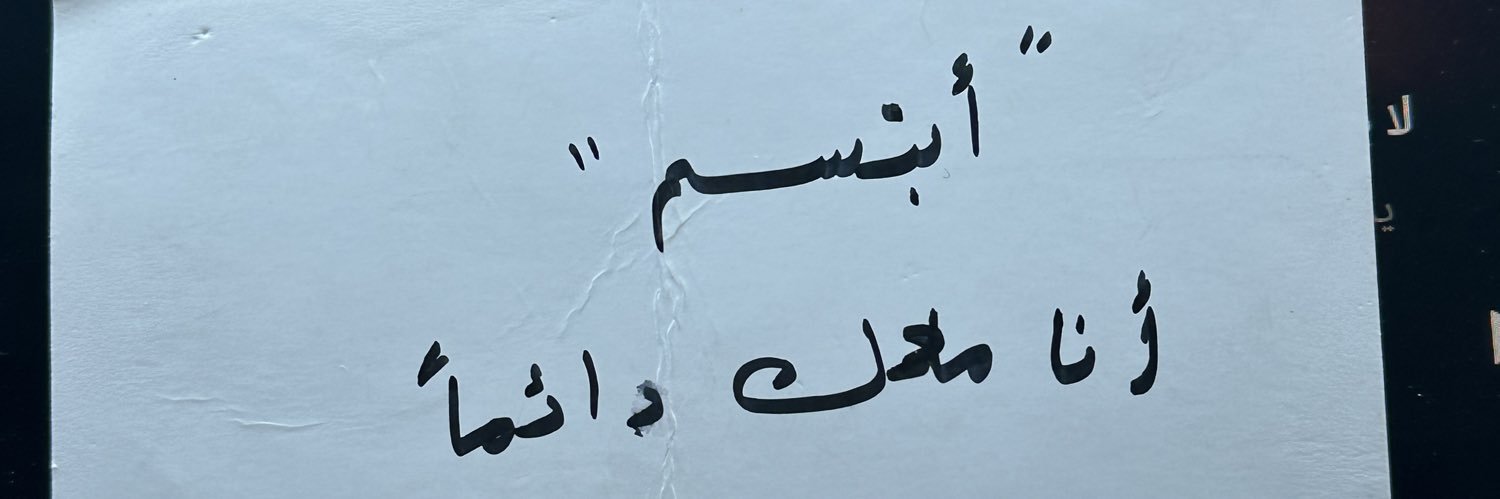 "أبتسم"
أنا معك دائماً
لا